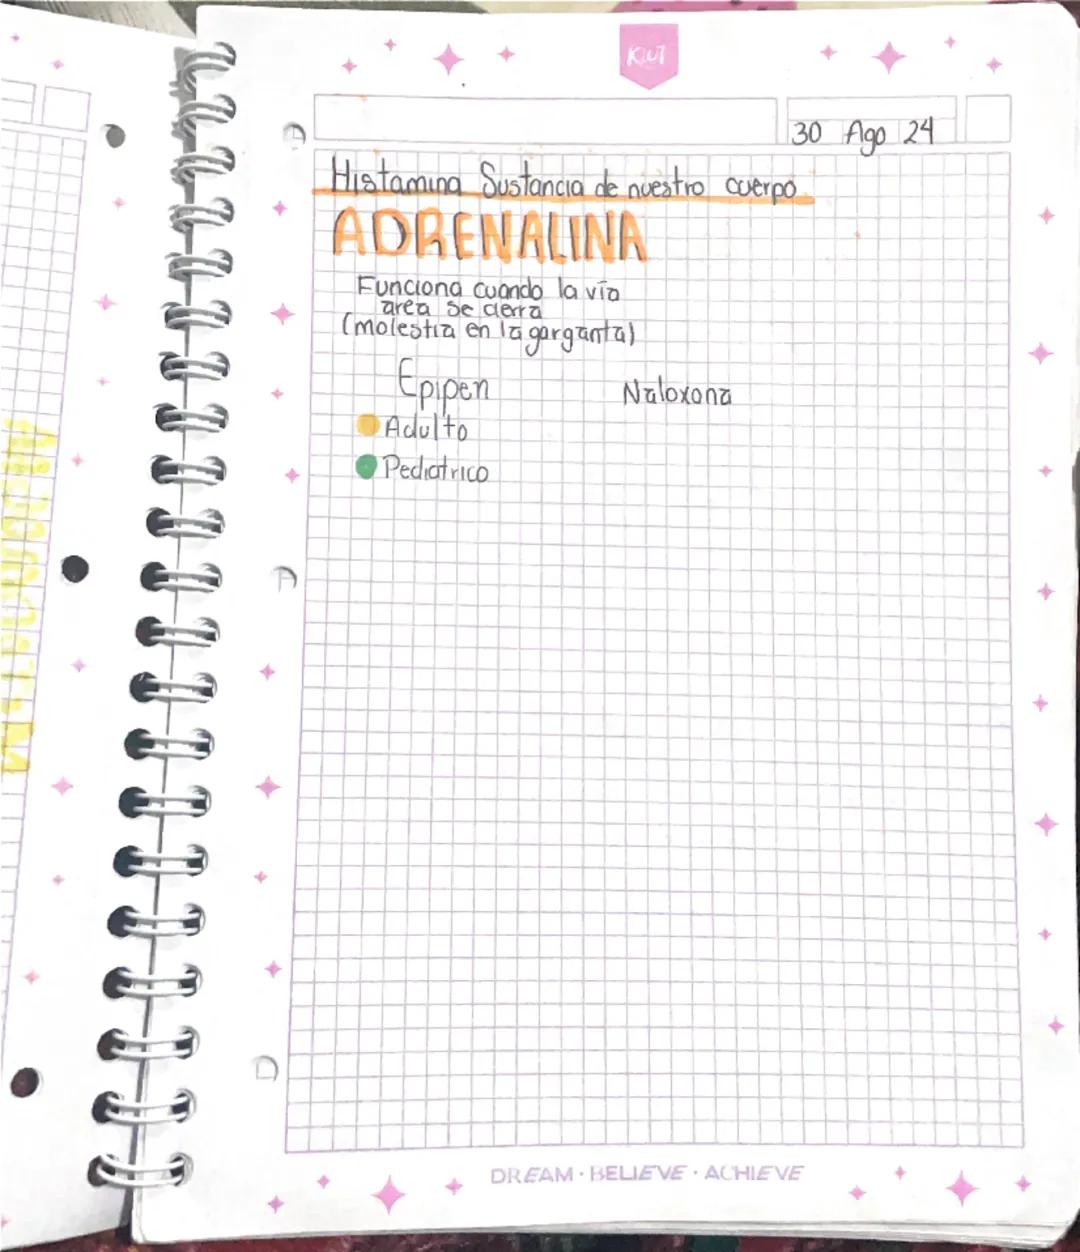 KIUT
30 Ago 24
Histamina Sustancia de nuestro cuerpo
ADRENALINA
Funciona cuando la vía
area se cierra
(molestia en la garganta)
Epipen
Naloxona
Adulto
Pediatrico
DREAM · BELIEVE · ACHIEVE